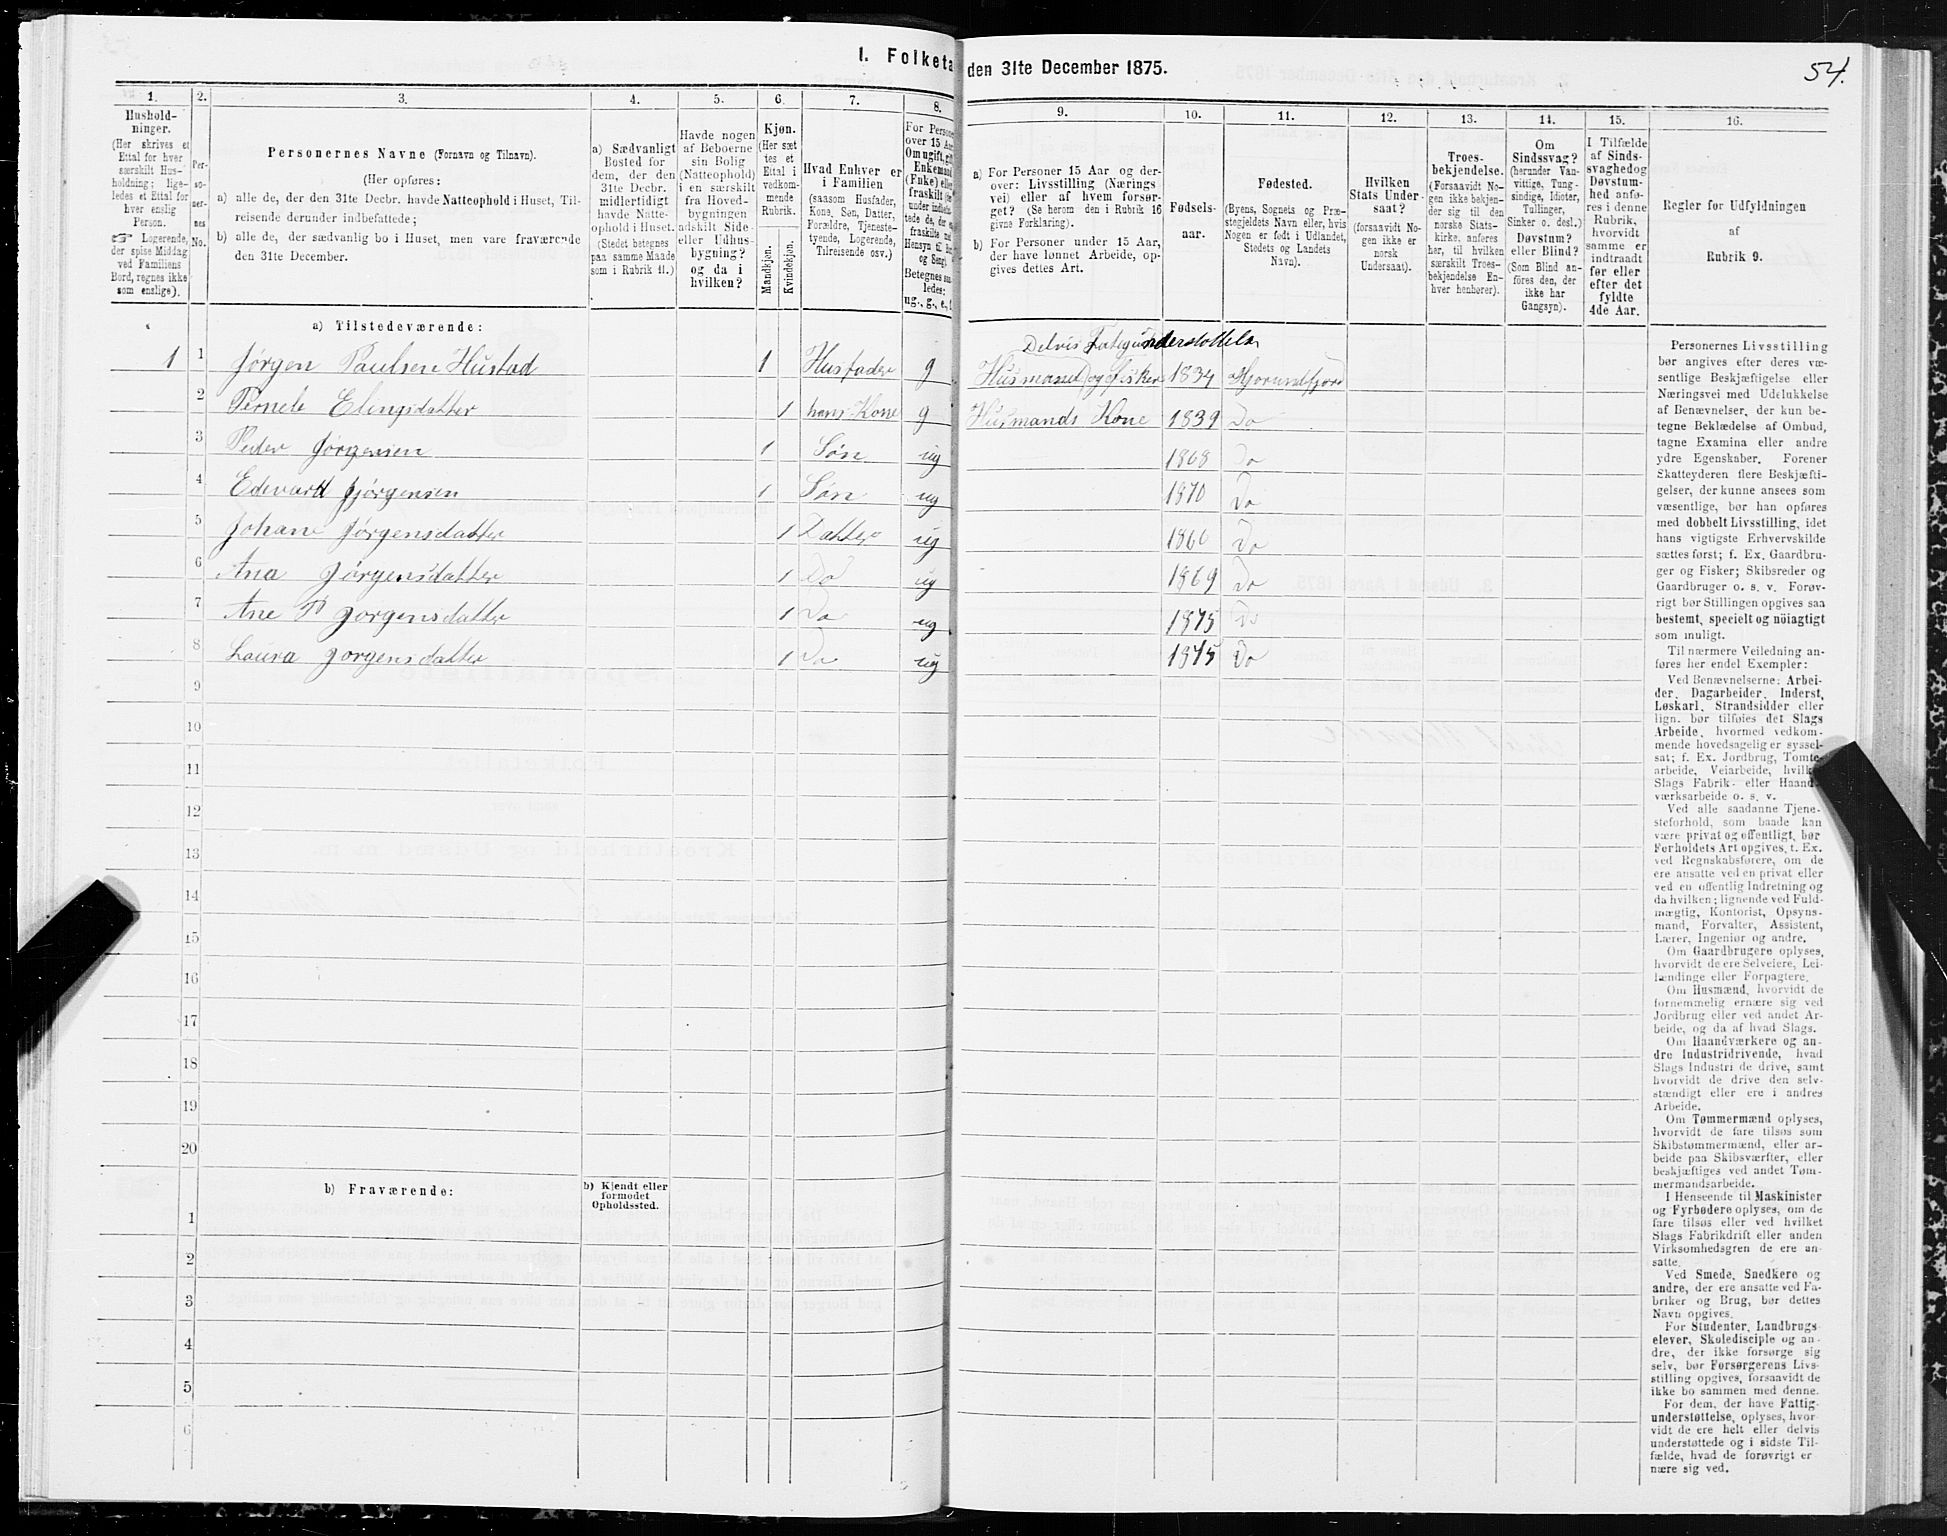 I. Folketa den 31te December 1875.
54.
1. 2. 3. 4. 5. 6. 7. 8. 9. 10. 11. 12. 13. 14. 15. 16.
Hushold-
ninger.
(Her skrives et
Ettal for hver
særskilt Hus-
holdning; lige-
ledes et Ettal for
hver enslig
Person.
☞ Logerende,
der spise Middag
ved Familiens
Bord, regnes ikke
som enslige).
Per-
so-
ner-
nes
No.
Personernes Navne (Fornavn og Tilnavn).
(Her opføres:
a) alle de, der den 31te Decbr. havde Natteophold i Huset, Til-
reisende derunder indbefattede;
b) alle de, der sædvanlig bo i Huset, men vare fraværende
den 31te December.
a) Sædvanligt
Bosted for
dem, der den
31te Decbr.
midlertidigt
havde Natte-
ophold i Huset.
(Stedet betegnes
paa samme Maade
som i Rubrik 11.)
Havde nogen
af Beboerne
sin Bolig
(Natteophold)
i en særskilt
fra Hoved-
bygningen
adskilt Side-
eller Udhus-
bygning?
og da i
hvilken?
Kjøn.
(Her sæt
tes et
Ettal i
vedkom-
mende
Rubrik.
Mandkjøn.
Kvindekjøn.
Hvad Enhver er
i Familien
(saasom Husfader,
Kone, Søn, Datter,
Forældre, Tjeneste-
tyende, Logerende,
Tilreisende osv.)
For Persone
over 15 Aar
Om ugift, gift
Enkemand
(Enke) elle
fraskilt
Betegnes saa
ledes:
ug., g., e.,
a) For Personer 15 Aar og der-
over: Livsstilling (Nærings
vei) eller af hvem forsør-
get? (Se herom den i Rubrik 16
givne Forklaring).
b) For Personer under 15 Aar,
der have lønnet Arbeide, op-
gives dettes Art.
Fødsels-
aar.
Fødested.
(Byens, Sognets og Præ-
stegjeldets Navn eller, hvis
Nogen er født i Udlandet,
Stedets og Landets
Navn).
Hvilken
Stats Under-
saat?
(forsaavidt No-
gen ikke er
norsk
Undersaat).
Troes-
bekjendelse.
(Forsaavidt No-
gen ikke bekjen-
der sig til den
norske Stats-
kirke, anføres
her, til hvilken
særskilt Troes-
bekjendelse En-
hver henhører).
Om
Sindssvag?
(herunder Van-
vittige, Tung-
sindige, Idioter,
Tullinger,
Sinker o. desl.)
Døvstum?
eller Blind?
(Som Blind an-
føres den, der
ikke har
Gangsyn).
I Tilfælde
af Sinds-
svaghed og
Døvstum-
hed anfø-
res i denne
Rubrik,
hvorvidt
samme er
indtraadt
før eller
efter det
fyldte
4de Aar.
Regler for Udfyldningen
af
Rubrik 9.
a) Tilstedeværende:
Delvis Fatigunderstottelse
1 1 Jørgen Paulsen Hustad 1 Husfader g Husmand og Fisker 1834 Hjorundfjord
2 Pernele Elingsdatter 1 hans Kone g Husmands Kone 1839 Do
3 Peder Jørgensen 1 Søn ug 1868 Do
4 Edevard Jørgensen 1 Søn ug 1870 Do
5 Johane Jørgensdatter 1 Datter ug 1860 Do
6 Ana Jørgensdatter 1 Do ug 1869 Do
7 Ane P Jorgensdatter 1 Do ug 1875 Do
8 Laura Jorgensdatter 1 Do ug 1875 Do
9
10
11
12
13
14
15
16
17
18
19
20
b) Fraværende:
b) Kjendt eller
formodet
Opholdssted.
1
2
3
4
5
6
Personernes Livsstilling
bør angives efter deres væ-
sentlige Beskjæftigelse eller
Næringsvei med Udelukkelse
af Benævnelser, der kun be-
tegne Beklædelse af Ombud,
tagne Examina eller andre
ydre Egenskaber. Forener
Skatteyderen flere Beskjæfti-
gelser, der kunne ansees som
væsentlige, bør han opføres
med dobbelt Livsstilling, idet
hans vigtigste Erhvervskilde
sættes først; f. Ex. Gaardbru-
ger og Fisker; Skibsreder og
Gaardbruger o. s. v. Forøv-
rigt bør Stillingen opgives saa
bestemt, specielt og nöiagtigt
som muligt.
Til nærmere Veiledning an-
føres her endel Exempler:
Ved Benævnelserne: Arbei-
der, Dagarbeider, Inderst,
Løskarl, Strandsidder eller
lign. bør tilføies det Slags
Arbeide, hvormed vedkom-
mende hovedsagelig er syssel-
sat; f. Ex. Jordbrug, Tomte-
arbeide, Veiarbeide, hvilket
Slags Fabrik- eller Haand-
værksarbeide o. s. v.
Ved alle saadanne Tjene-
steforhold, som baade kan
være privat og offentligt, bør
Forholdets Art opgives, t. Ex.
ved Regnskabsførere, om de
ere ansatte ved en privat eller
ved en offentlig Indretning og
da hvilken; lignende ved Fuld-
mægtig, Kontorist, Opsyns-
mand, Forvalter, Assistent,
Lærer, Ingeniør og andre.
Om Gaardbrugere oplyses,
hvorvidt de ere Selveiere, Lei-
lændinge eller Forpagtere.
Om Husmænd, hvorvidt de
fornemmelig ernære sig ved
Jordbrug eller ved andet Ar-
beide, og da af hvad Slags.
Om Haandværkere og an-
dre Industridrivende, hvad
Slags Industri de drive, samt
hvorvidt de drive den selv-
stændigt eller ere i andres
Arbeide.
Om Tømmermænd oplyses,
hvorvidt de fare tilsøs som
Skibstømmermænd, eller ar-
beide paa Skibsværfter, eller
beskjæftiges ved andet Tøm-
mermandsarbeide.
I Henseende til Maskinister
og Fyrbødere oplyses, om de
fare tilsøs eller ved hvilket
Slags Fabrikdrift eller anden
Virksomhedsgren de ere an-
satte.
Ved Smede, Snedkere og
andre, der ere ansatte ved Fa-
briker og Brug, bør dettes
Navn opgives.
For Studenter, Landbrugs-
elever, Skoledisciple og an-
dre, der ikke forsørge sig
selv, bør Forsørgerens Livs-
stilling opgives, forsaavidt de
ikke bo sammen med denne.
For dem, der have Fattig-
understøttelse, oplyses, hvor-
vidt de ere helt eller delvis
understøttede og i sidste Til-
fælde, hvad de forøvrigt er
nære sig ved.